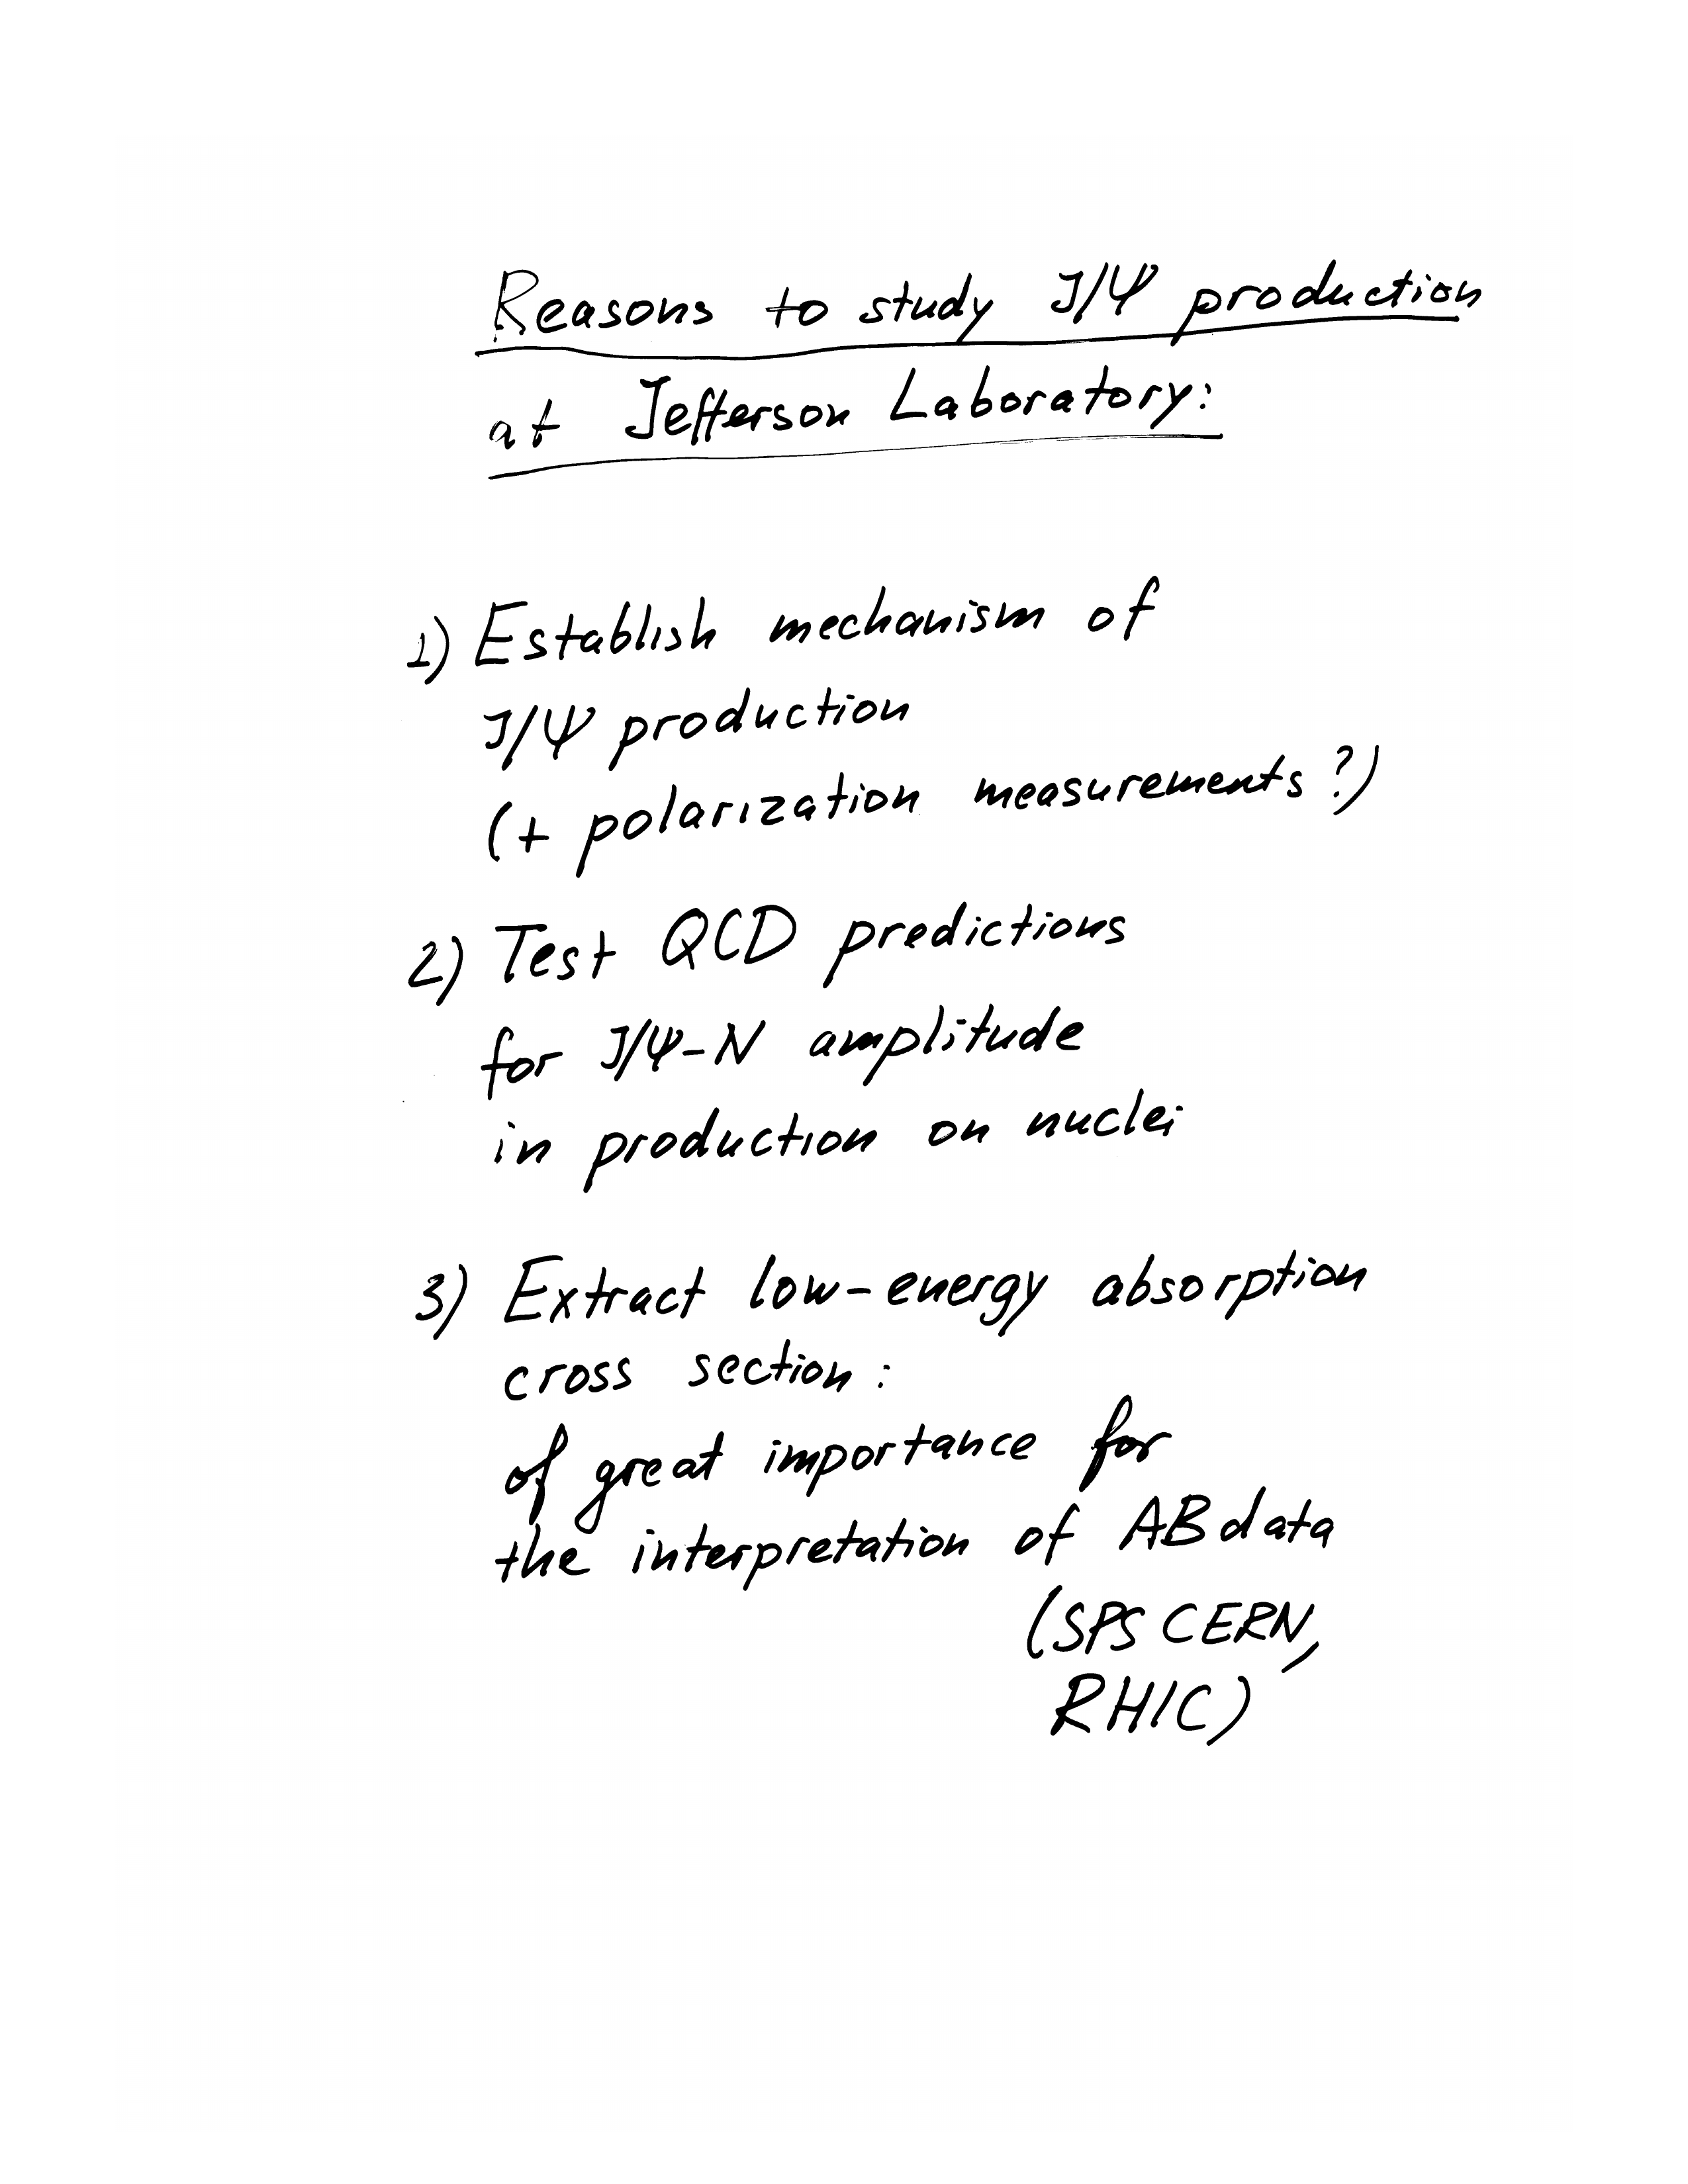 Reasons to study J/Ψ production
at Jefferson Laboratory:
1) Establish mechanism of
J/Ψ production
(+ polarization measurements?)
2) Test QCD predictions
for J/Ψ-N amplitude
in production on nuclei
3) Extract low-energy absorption
cross section:
of great importance for
the interpretation of AB data
(SPS CERN,
RHIC)